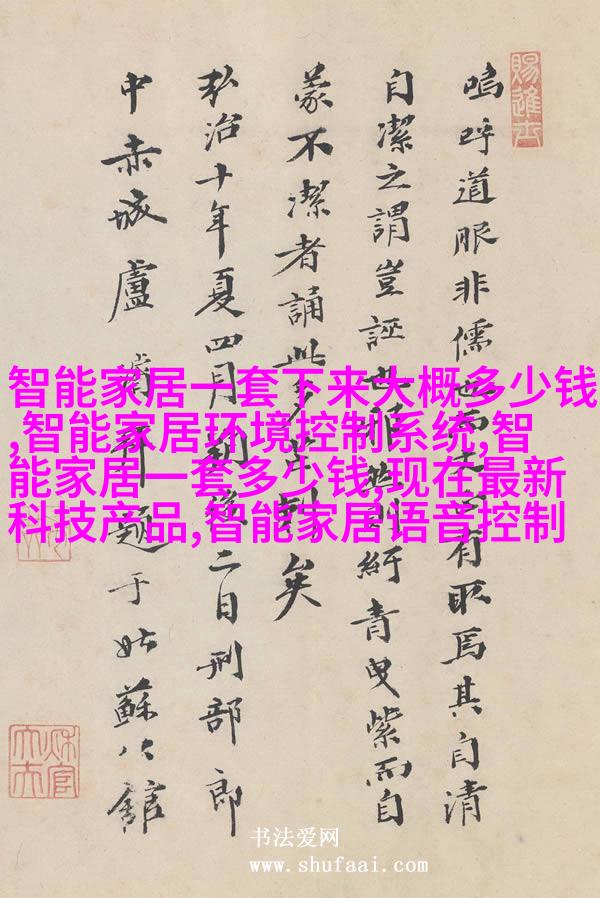 賜進士
嗚呼道眼非儒也而有取焉其自清
自潔之謂豈誣紆青曳紫而自
蒙不潔者誦此多矣
弘治十年夏四月二日刑部郎
中赤城盧題于姑蘇公館
智能家居一套下来大概多少钱
,智能家居环境控制系统,智
能家居一套多少钱,现在最新
科技产品,智能家居语音控制
书法爱网
www.shufaai.com